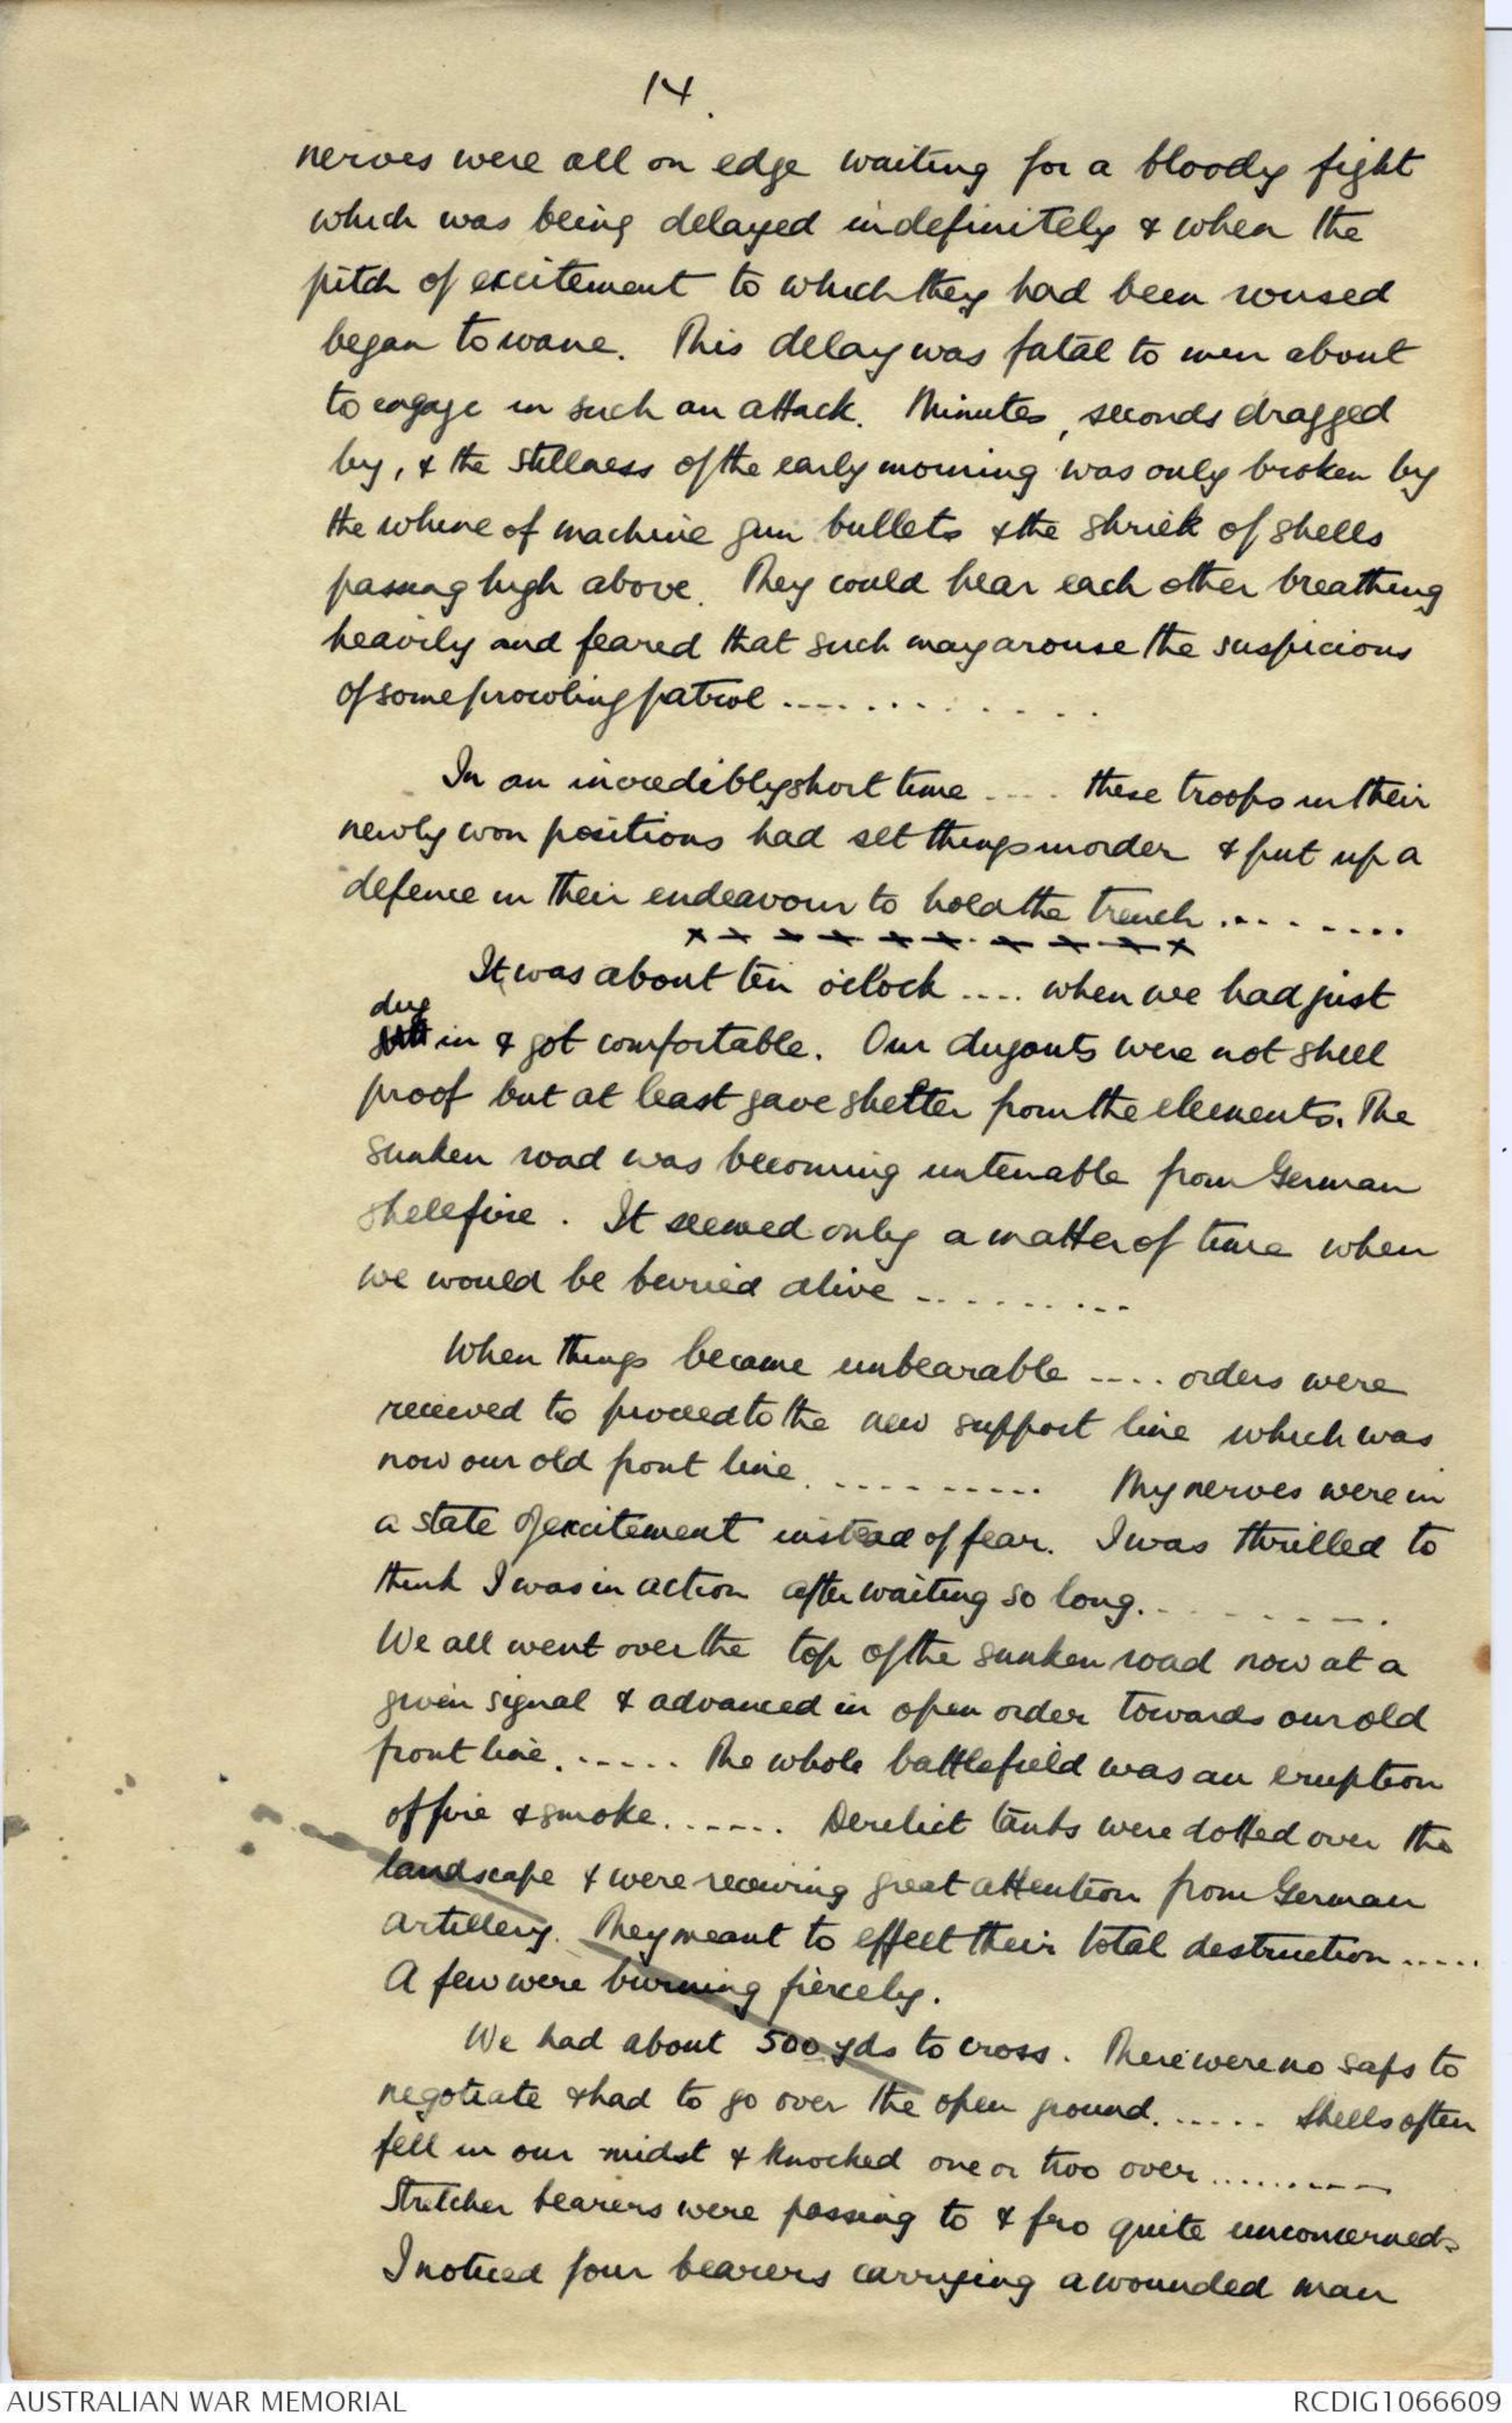 14.
nerves were all on edge waiting for a bloody fight
which was being delayed indefinitely & when the
pitch of excitement to which they had been roused
began to wane. This delay was fatal to men about
to engage in such an attack. Minutes, seconds dragged
by, & the stillness of the early morning was only broken by
the whine of machine gun bullets & the shriek of shells
passing high above. They could hear each other breathing
heavily and feared that such may arouse the suspicions
of some prowling patrol ..............
In an incredibly short time .... these troops in their
newly won positions had set things in order & put up a
defence in their endeavour to hold the trench .........
x x x x x x x x x x
It was about ten o'clock .... when we had just
dug
in & got comfortable. Our dugouts were not shell
proof but at least gave shelter from the elements. The
sunken road was becoming untenable from German
shellfire. It seemed only a matter of time when
we would be burried alive ..........
When things became unbearable .... orders were
received to proceed to the new support line which was
now our old front line ........... My nerves were in
a state of excitement instead of fear. I was thrilled to
think I was in action after waiting so long.........
We all went over the top of the sunken road now at a
given signal & advanced in open order towards our old
front line ...... The whole battlefield was an eruption
of fire & smoke....... Derelict tanks were dotted over the
landscape & were receiving great attention from German
artillery. They meant to effect their total destruction .....
A few were burning fiercely.
We had about 500 yds to cross. There were no saps to
negotiate & had to go over the open ground ...... Shells often
fell in our midst & knocked one or two over ..........
Stretcher bearers were passing to & fro quite unconcerned.
I noticed four bearers carrying a wounded man
AUSTRALIAN WAR MEMORIAL
RCDIG1066609